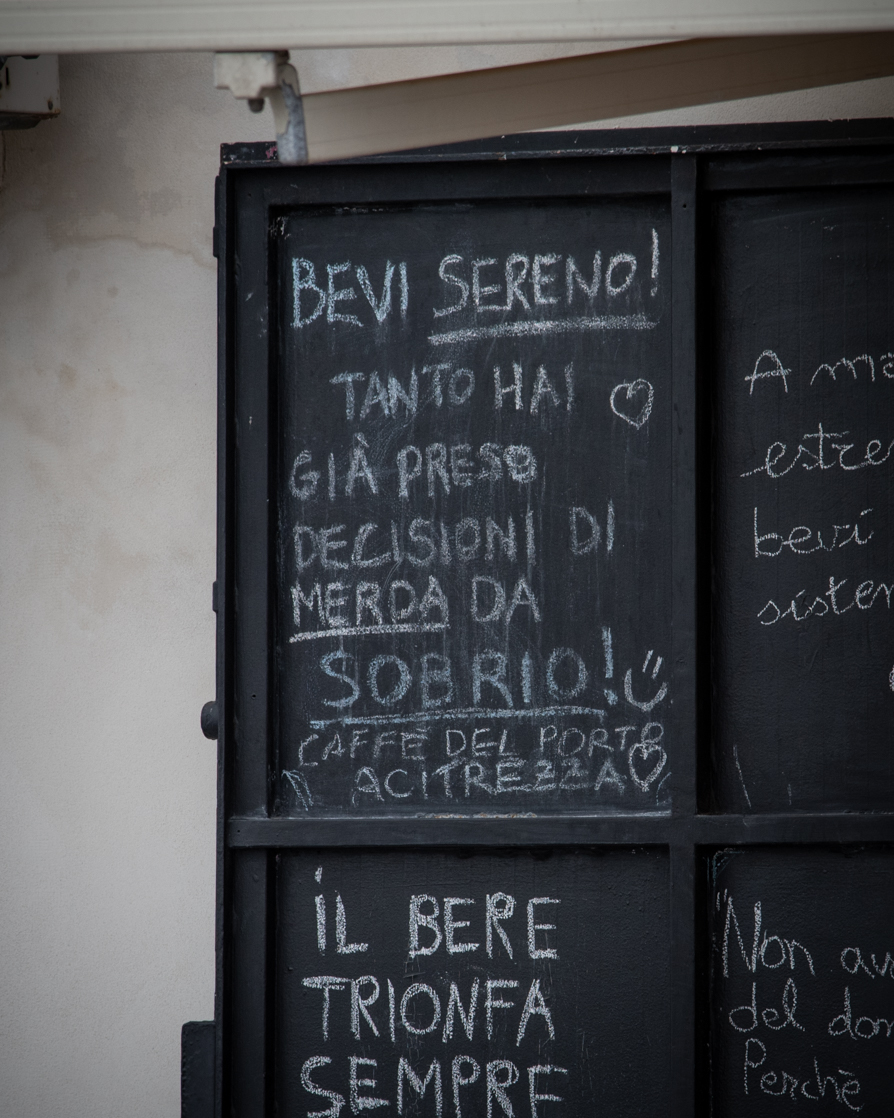 BEVI SERENO!
TANTO HAI
GIÀ PRESO
DECISIONI DI
MERDA DA
SOBRIO!
CAFFÈ DEL PORTO
ACITREZZA
A
bevi
IL BERE
TRIONFA
SEMPRE
"Non
del
Perchè